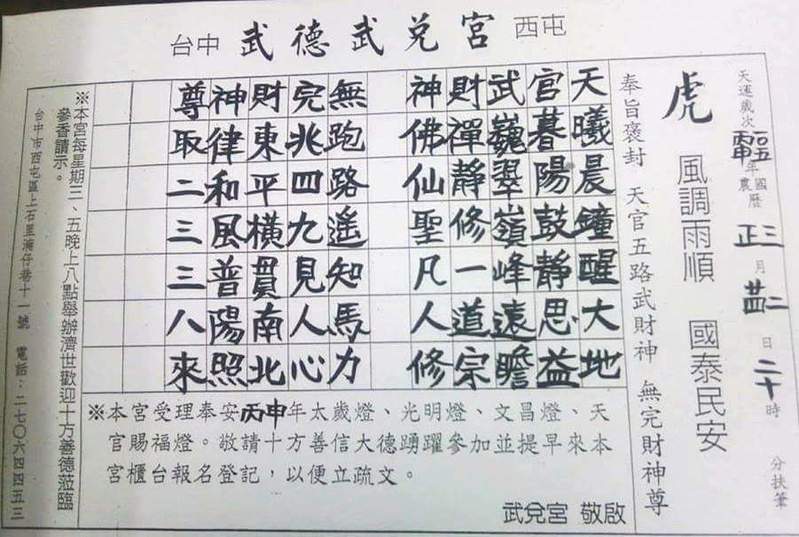 台中 武德武兌宮 西屯
天運歲次 年 國農曆 正三 月 日 二十 時 分扶筆
虎 風調雨順 國泰民安
奉旨褒封 天官五路武財神 無完財神尊
天曦晨鐘醒大地
官暮陽鼓靜思益
武巍翠嶺峰遠瞻
財禪靜修一道宗
神佛仙聖凡人修
無跑路遙知馬力
完兆四九見人心
財東平橫貫南北
神律和風普陽照
尊取二三三八來
※本宮受理奉安丙申年太歲燈、光明燈、文昌燈、天
官賜福燈。敬請十方善信大德踴躍參加並提早來本
宮櫃台報名登記，以便立疏文。
武兌宮 敬啟
※本宮每星期三、五晚上八點舉辦濟世歡迎十方善德蒞臨
參香請示。
台中市西屯區上石里灣仔巷十一號 電話：二七〇六四四五三